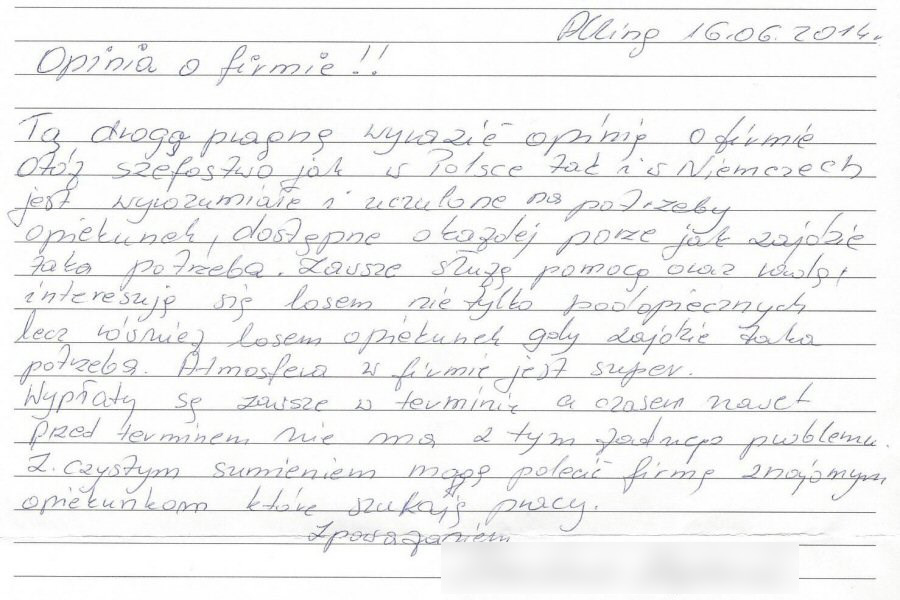 Alling 16.06.2014r.
Opinia o firmie!!
Tą drogą pragnę wyrazić opinię o firmie
otóż szefostwo jak w Polsce tak i w Niemczech
jest wyrozumiałe i uczulone na potrzeby
opiekunek, dostępne o każdej porze jak zajdzie
taka potrzeba. Zawsze służą pomocą oraz radą,
interesują się losem nie tylko podopiecznych
lecz również losem opiekunek gdy zajdzie taka
potrzeba. Atmosfera w firmie jest super.
Wypłaty są zawsze w terminie a czasem nawet
przed terminem nie ma z tym żadnego problemu.
Z czystym sumieniem mogę polecić firmę znajomym
opiekunkom które szukają pracy.
Z poważaniem